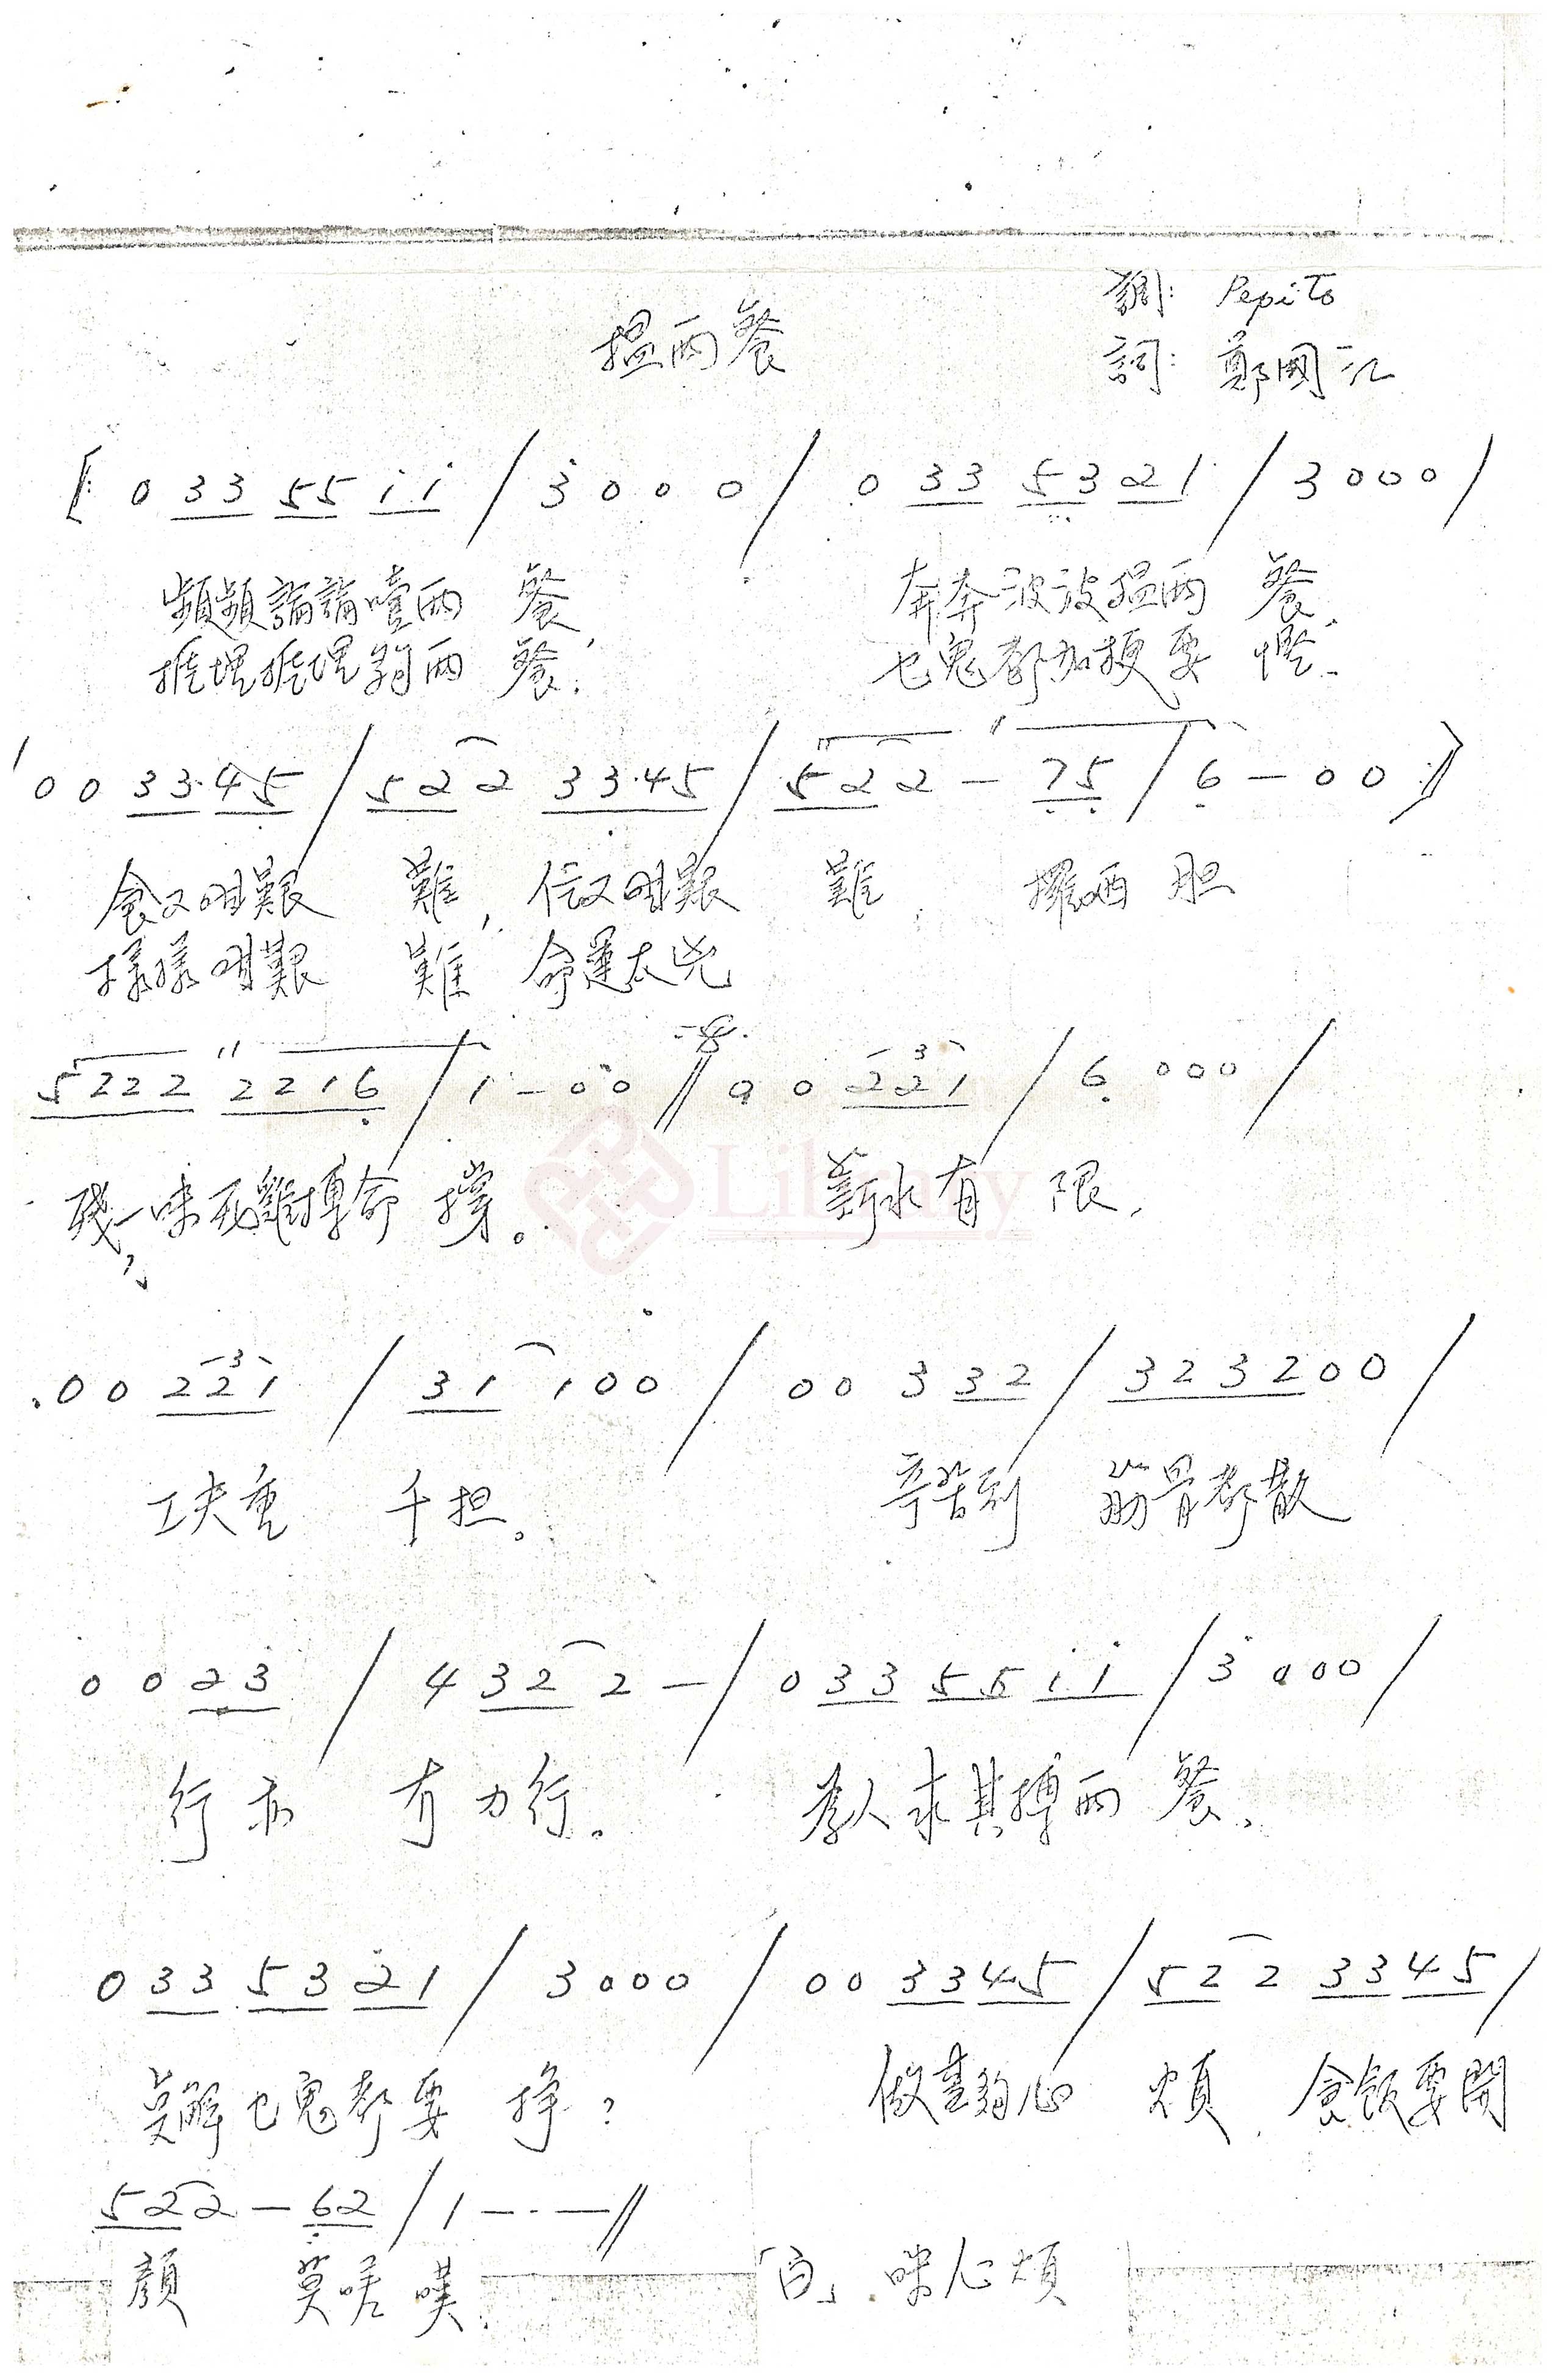 搵兩餐
調: Pepito
詞: 鄭國江
[: 0 33 55 i i / 3 0 0 0 / 0 33 53 21 / 3 0 0 0 /
頻頻 兩餐, 奔奔波波搵兩餐,
推埋推埋夠兩餐. 乜鬼都加梗要慳.
0 0 33 45 / 52 2 33 45 / 52 2 - 75 / 6 - 0 0 :]
食又咁艱難, 住又咁艱難, 攞兩胆
樣樣咁艱難 命運太兇
5222 2216 / 1 - 0 0 // 0 0 221 / 6 0 0 0 /
殘,一味死雞搏命撐。 薪水有限,
Library
0 0 221 / 31 1 0 0 / 0 0 3 32 / 3232 0 0 /
工夫重千担。 辛苦到筋骨都散
0 0 23 / 4 32 2 - / 0 33 55 i i / 3 0 0 0 /
行亦冇力行。 人求其搏兩餐,
0 33 53 21 / 3 0 0 0 / 0 0 33 45 / 52 2 33 45 /
莫解乜鬼都要掙? 做晝夠心煩, 食飯要開
52 2 - 62 / 1 - - - //
顏 莫嗟嘆, 「白」咪心煩